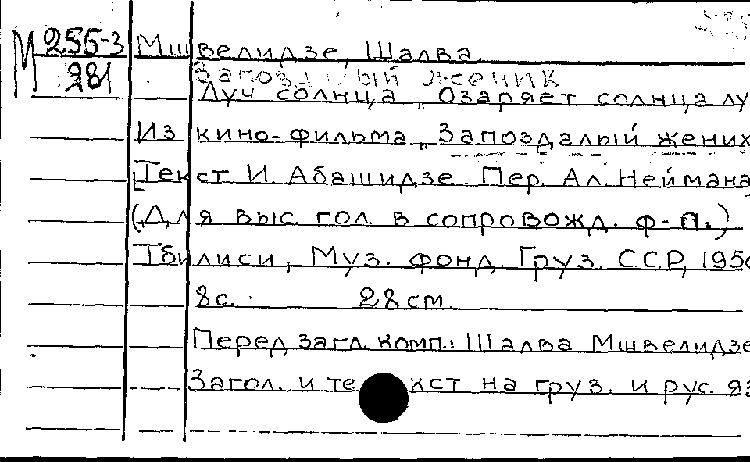 М 255-3 Мшвелидзе, Шалва
281 Запоздалый жених
Луч солнца „Озаряет солнца лу
Из кино-фильма „Запоздалый жених
Текст И. Абашидзе. Пер. Ал. Неймана
(Для выс. гол. в сопровожд. ф-п.)
Тбилиси, Муз. фонд Груз. ССР, 195
8с. 28 см.
Перед загл. комп.: Шалва Мшвелидзе
Загол. и текст на груз. и рус. яз